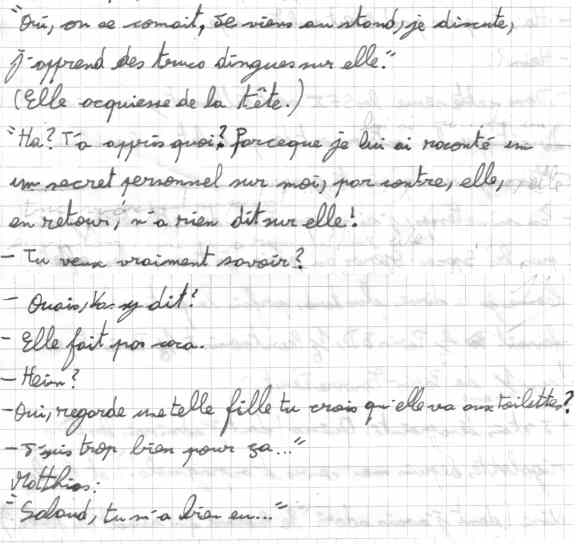 "Oui, on se connait, Je viens au stand, je discute,
j'apprend des trucs dingues sur elle."
(Elle acquiesse de la tête.)
"Ha? T'a appris quoi? Parceque je lui ai raconté un
un secret personnel sur moi, par contre, elle,
en retour, n'a rien dit sur elle!
- Tu veux vraiment savoir?
- Ouais, Vas-y dit?
- Elle fait pas caca.
- Hein?
- Oui, regarde une telle fille tu crois qu'elle va aux toilettes?
- J'suis trop bien pour ça..."
Matthias:
"Salaud, tu m'a bien eu..."